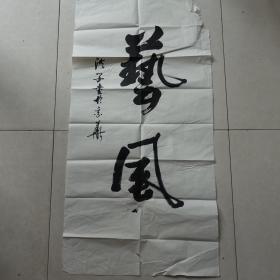 藝風
書於京華